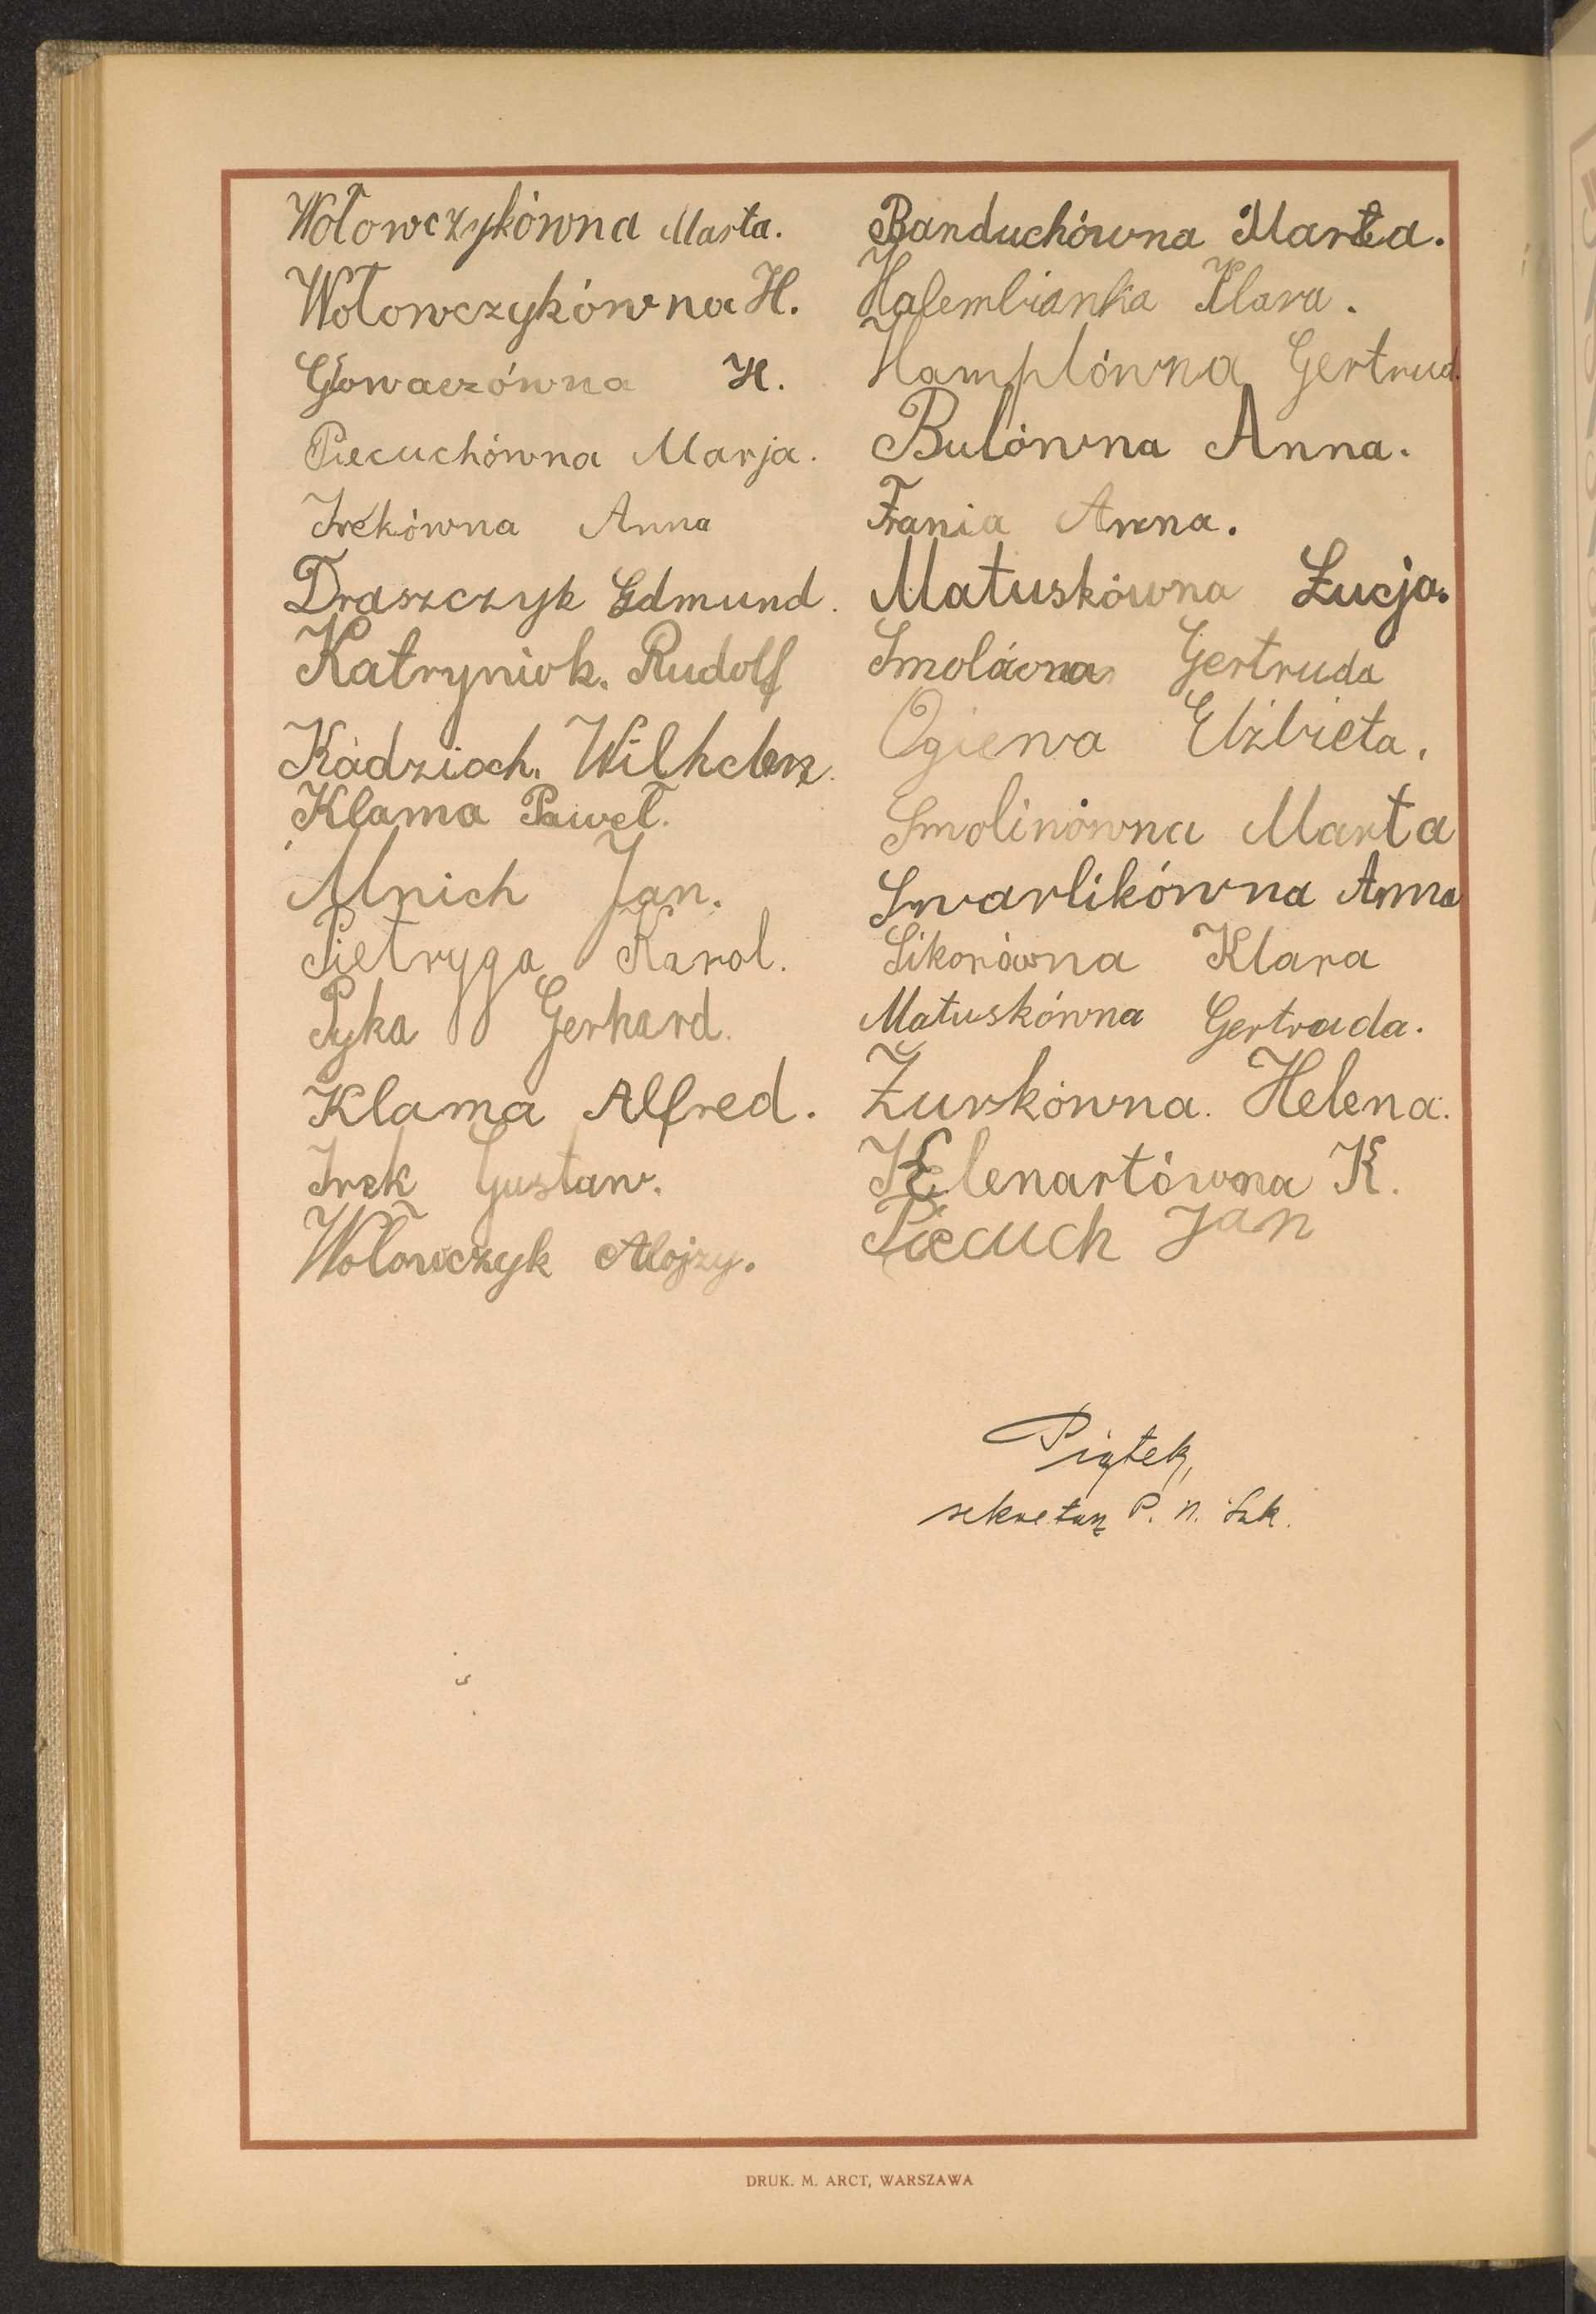 Wołowczykówna Marta.
Wołowczykówna H.
Głowaczówna H.
Piecuchówna Marja.
Irekówna Anna
Draszczyk Edmund.
Katryniok. Rudolf
Kadzioch. Wilhelm.
Klama Paweł.
Mnich Jan.
Pietryga Karol.
Pyka Gerhard.
Klama Alfred.
Irek Gustaw.
Wołowczyk Alojzy.
Banduchówna Marta.
Halembianka Klara.
Hamplówna Gertrud.
Bulówna Anna.
Frania Anna.
Matuskówna Łucja.
Smolówna Gertruda
Ogiewa Elżbieta.
Smolinówna Marta
Swarlikówna Anna
Sikorówna Klara
Matuskówna Gertruda.
Żurkówna. Helena.
Klenartówna K.
Piecuch Jan
Piątek,
sekretarz P. n. Szk.
DRUK. M. ARCT, WARSZAWA